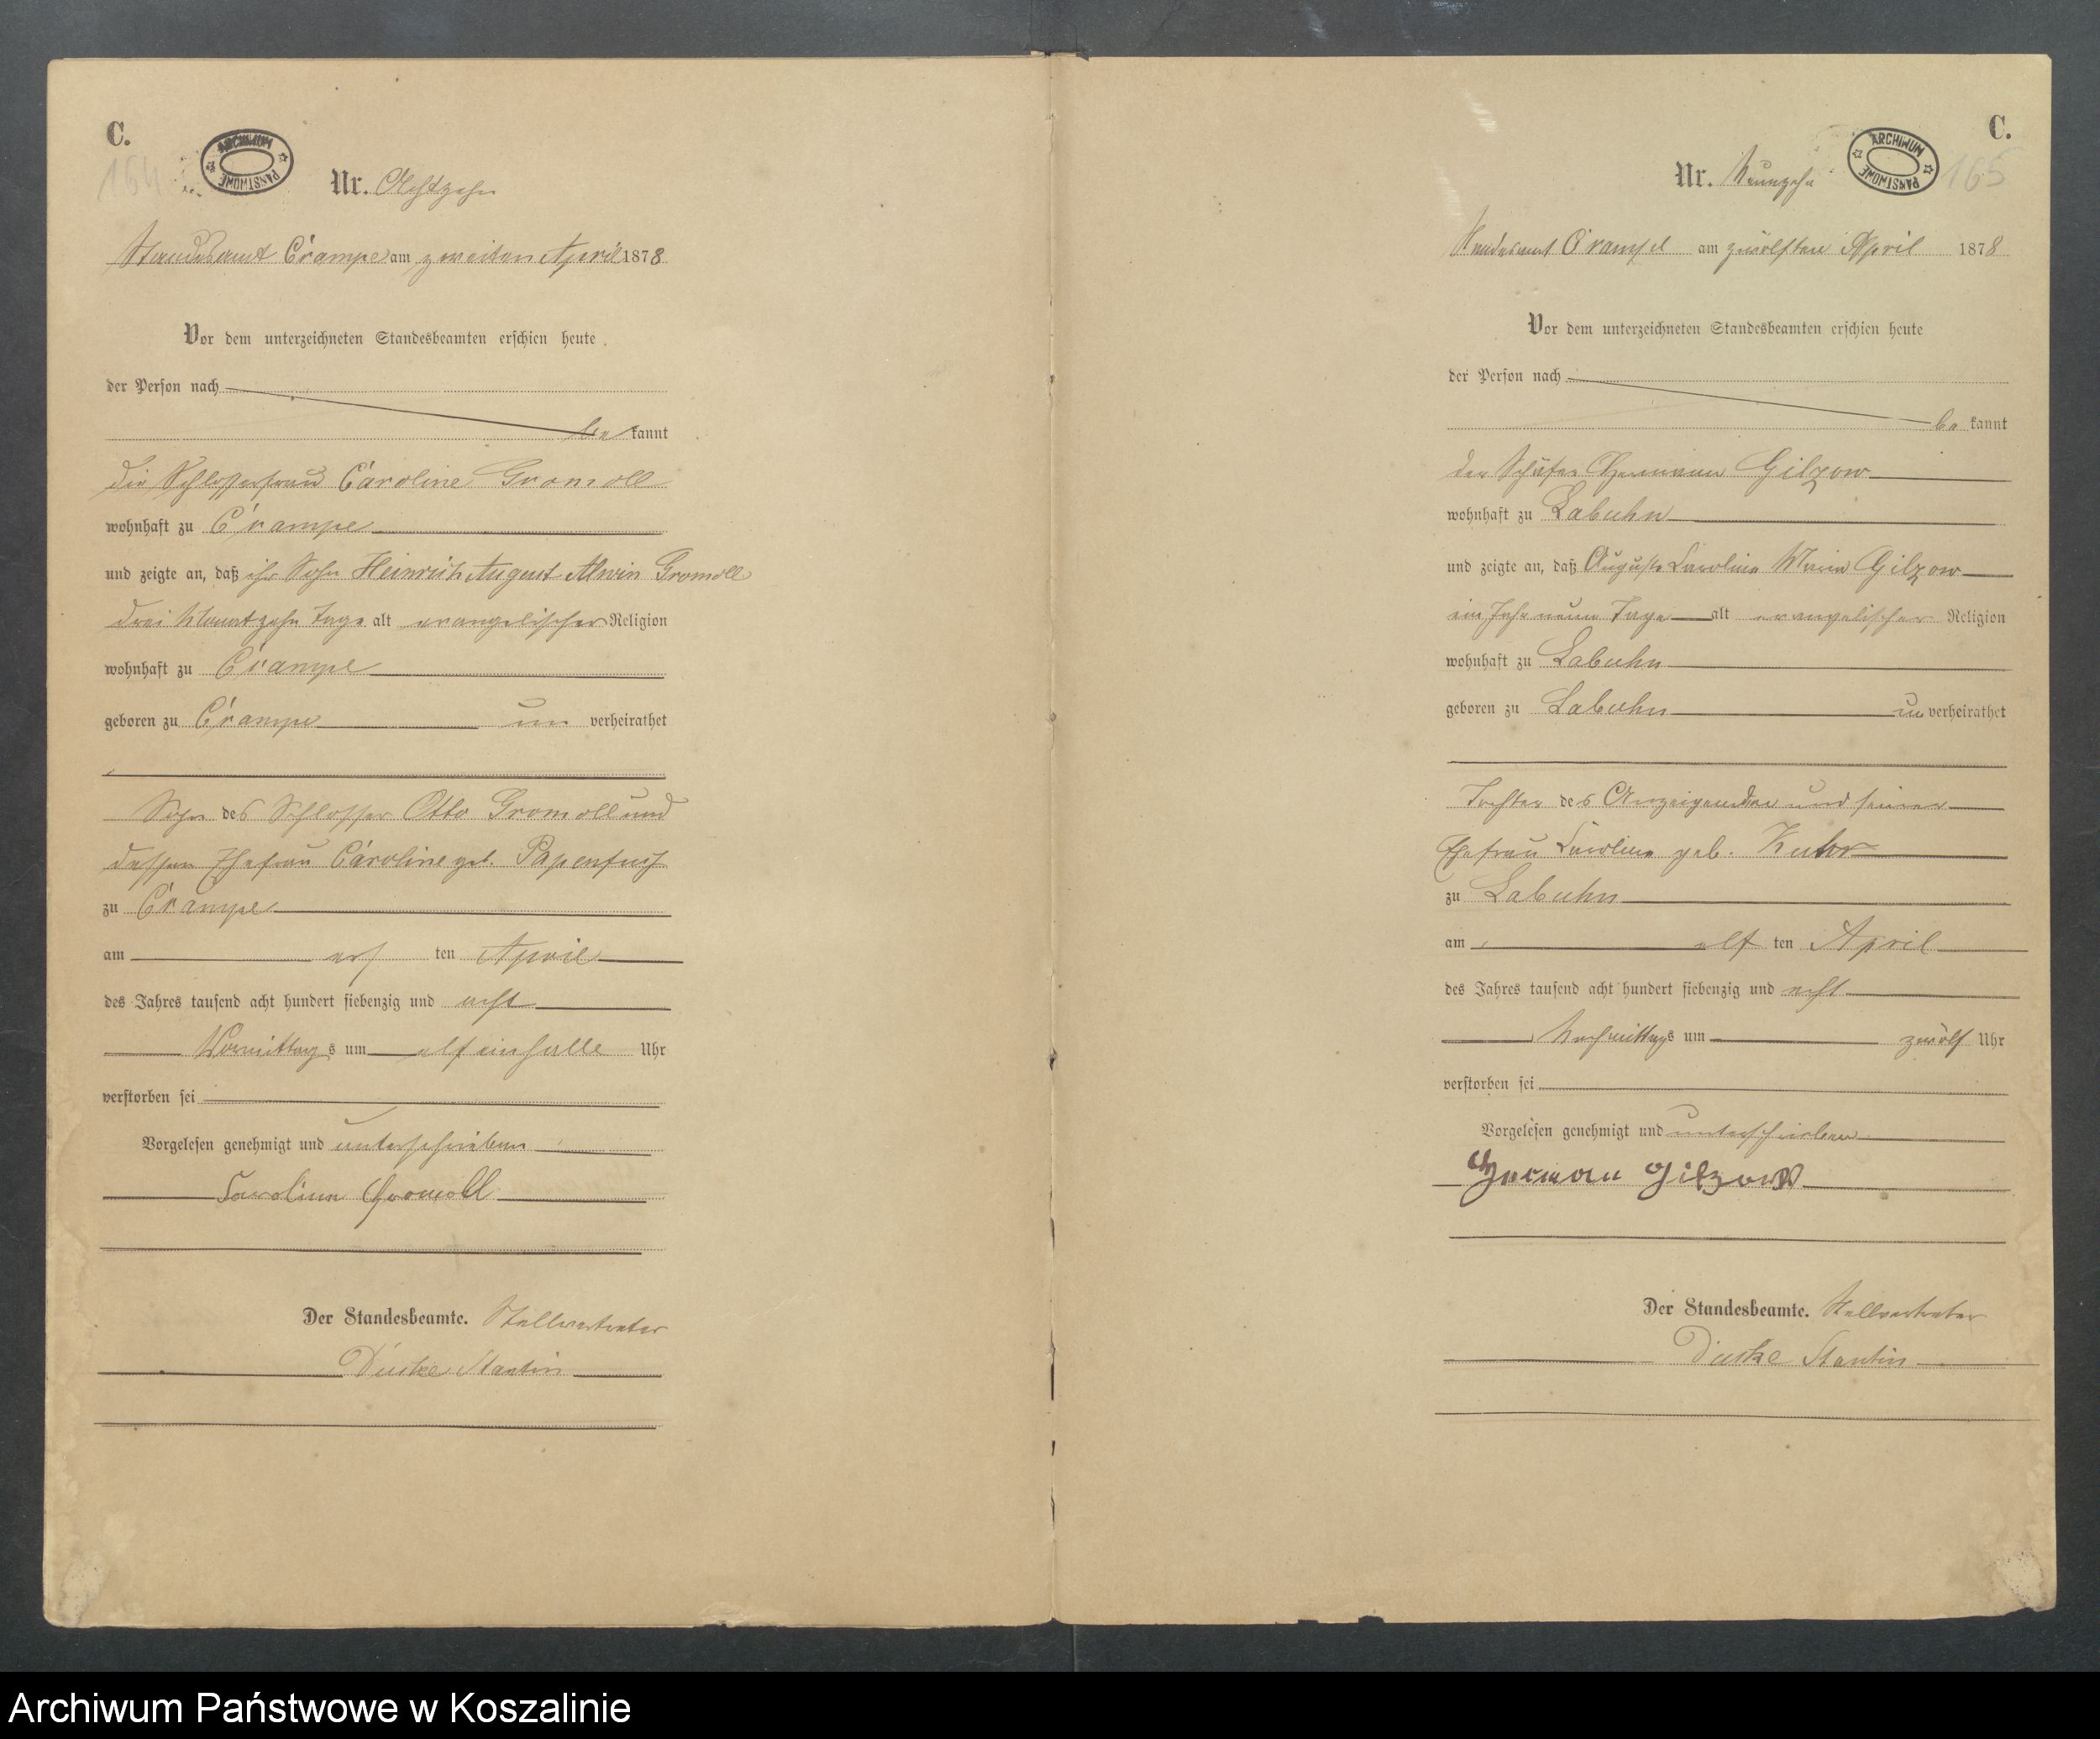 C.
164
ARCHIWUM PAŃSTWOWE
Nr. Achtzehn
Standesamt Crampe am zweiten April 1878
Vor dem unterzeichneten Standesbeamten erschien heute
der Person nach
be kannt
die Schlosserfrau Caroline Gromoll
wohnhaft zu Crampe
und zeigte an, daß ihr Sohn Heinrich August Alwin Gromoll
drei Monat zehn Tage alt evangelischer Religion
wohnhaft zu Crampe
geboren zu Crampe un verheirathet
Sohn des Schlosser Otto Gromoll und
dessen Ehefrau Caroline geb. Papenfuß
zu Crampe
am ers ten April
des Jahres tausend acht hundert siebenzig und acht
Vormittag s um elf ein halb Uhr
verstorben sei
Vorgelesen genehmigt und unterschrieben
Caroline Gromoll
Der Standesbeamte. Stellvertreter
C.
165
ARCHIWUM PAŃSTWOWE
Nr. Neunzehn
Standesamt Crampe am zwölften April 1878
Vor dem unterzeichneten Standesbeamten erschien heute
der Person nach
be kannt
der Schäfer Hermann Gilzow
wohnhaft zu Labuhn
und zeigte an, daß Auguste Caroline Marie Gilzow
ein Jahr neun Tage alt evangelischer Religion
wohnhaft zu Labuhn
geboren zu Labuhn un verheirathet
Tochter des Anzeigenden und seiner
Ehefrau Caroline geb.
zu Labuhn
am elf ten April
des Jahres tausend acht hundert siebenzig und acht
Nachmittags um zwölf Uhr
verstorben sei
Vorgelesen genehmigt und unterschrieben
Herman Gilzow
Der Standesbeamte. Stellvertreter
Archiwum Państwowe w Koszalinie